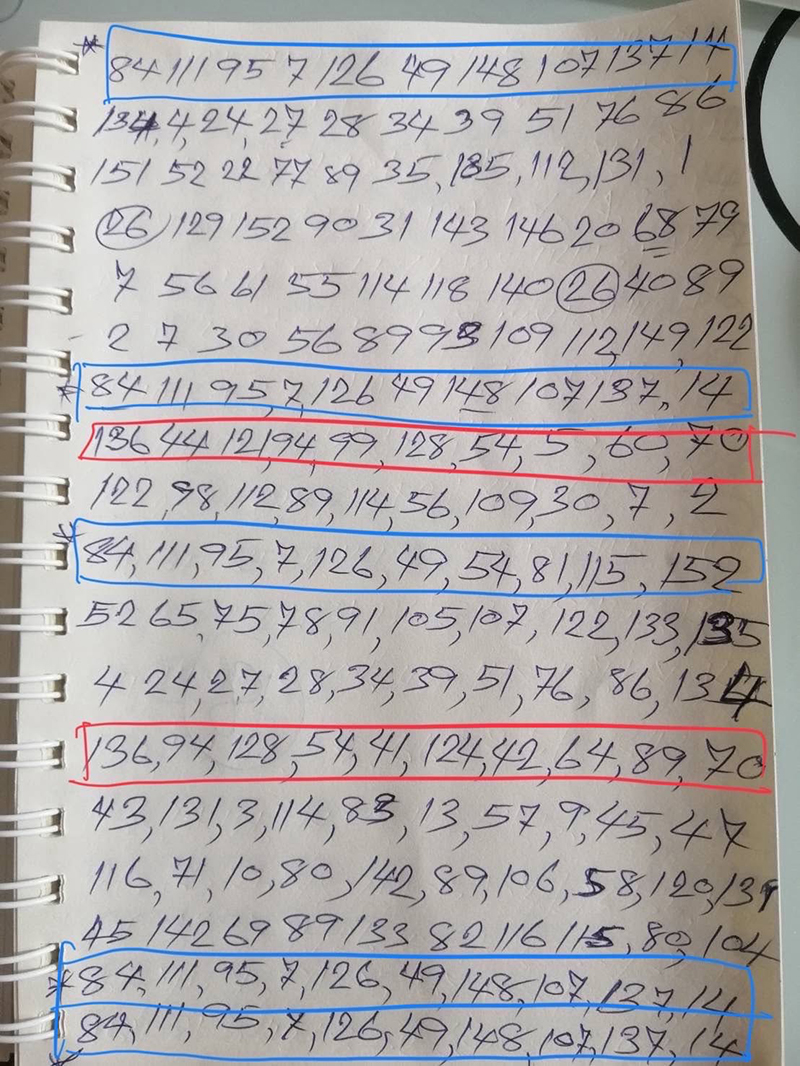 * 84 111 95 7 126 49 148 107 137 14
134, 4, 24, 27 28 34 39 51 76 86
151 52 22 77 89 35, 135, 112, 131, 1
26 129 152 90 31 143 146 20 68 79
7 56 61 55 114 118 140 26 40 89
- 2 7 30 56 89 98 109 112, 149, 122
* 84 111 95, 7, 126 49 148 107 137, 14
136 44 121, 94, 99, 128, 54, 5, 60, 70
122, 98, 112, 89, 114, 56, 109, 30, 7, 2
* 84, 111, 95, 7, 126, 49, 54, 81, 115, 152
52 65, 75, 78, 91, 105, 107, 122, 133, 135
4 24, 27, 28, 34, 39, 51, 76, 86, 134
136, 94, 128, 54, 41, 124, 42, 64, 89, 70
43, 131, 3, 114, 83, 13, 57, 9, 45, 47
116, 71, 10, 80, 142, 89, 106, 58, 120,
45 142 69 89 133 82 116 115, 80, 104
* 84, 111, 95, 7, 126, 49, 148, 107, 137, 14
* 84, 111, 95, 7, 126, 49, 148, 107, 137, 14